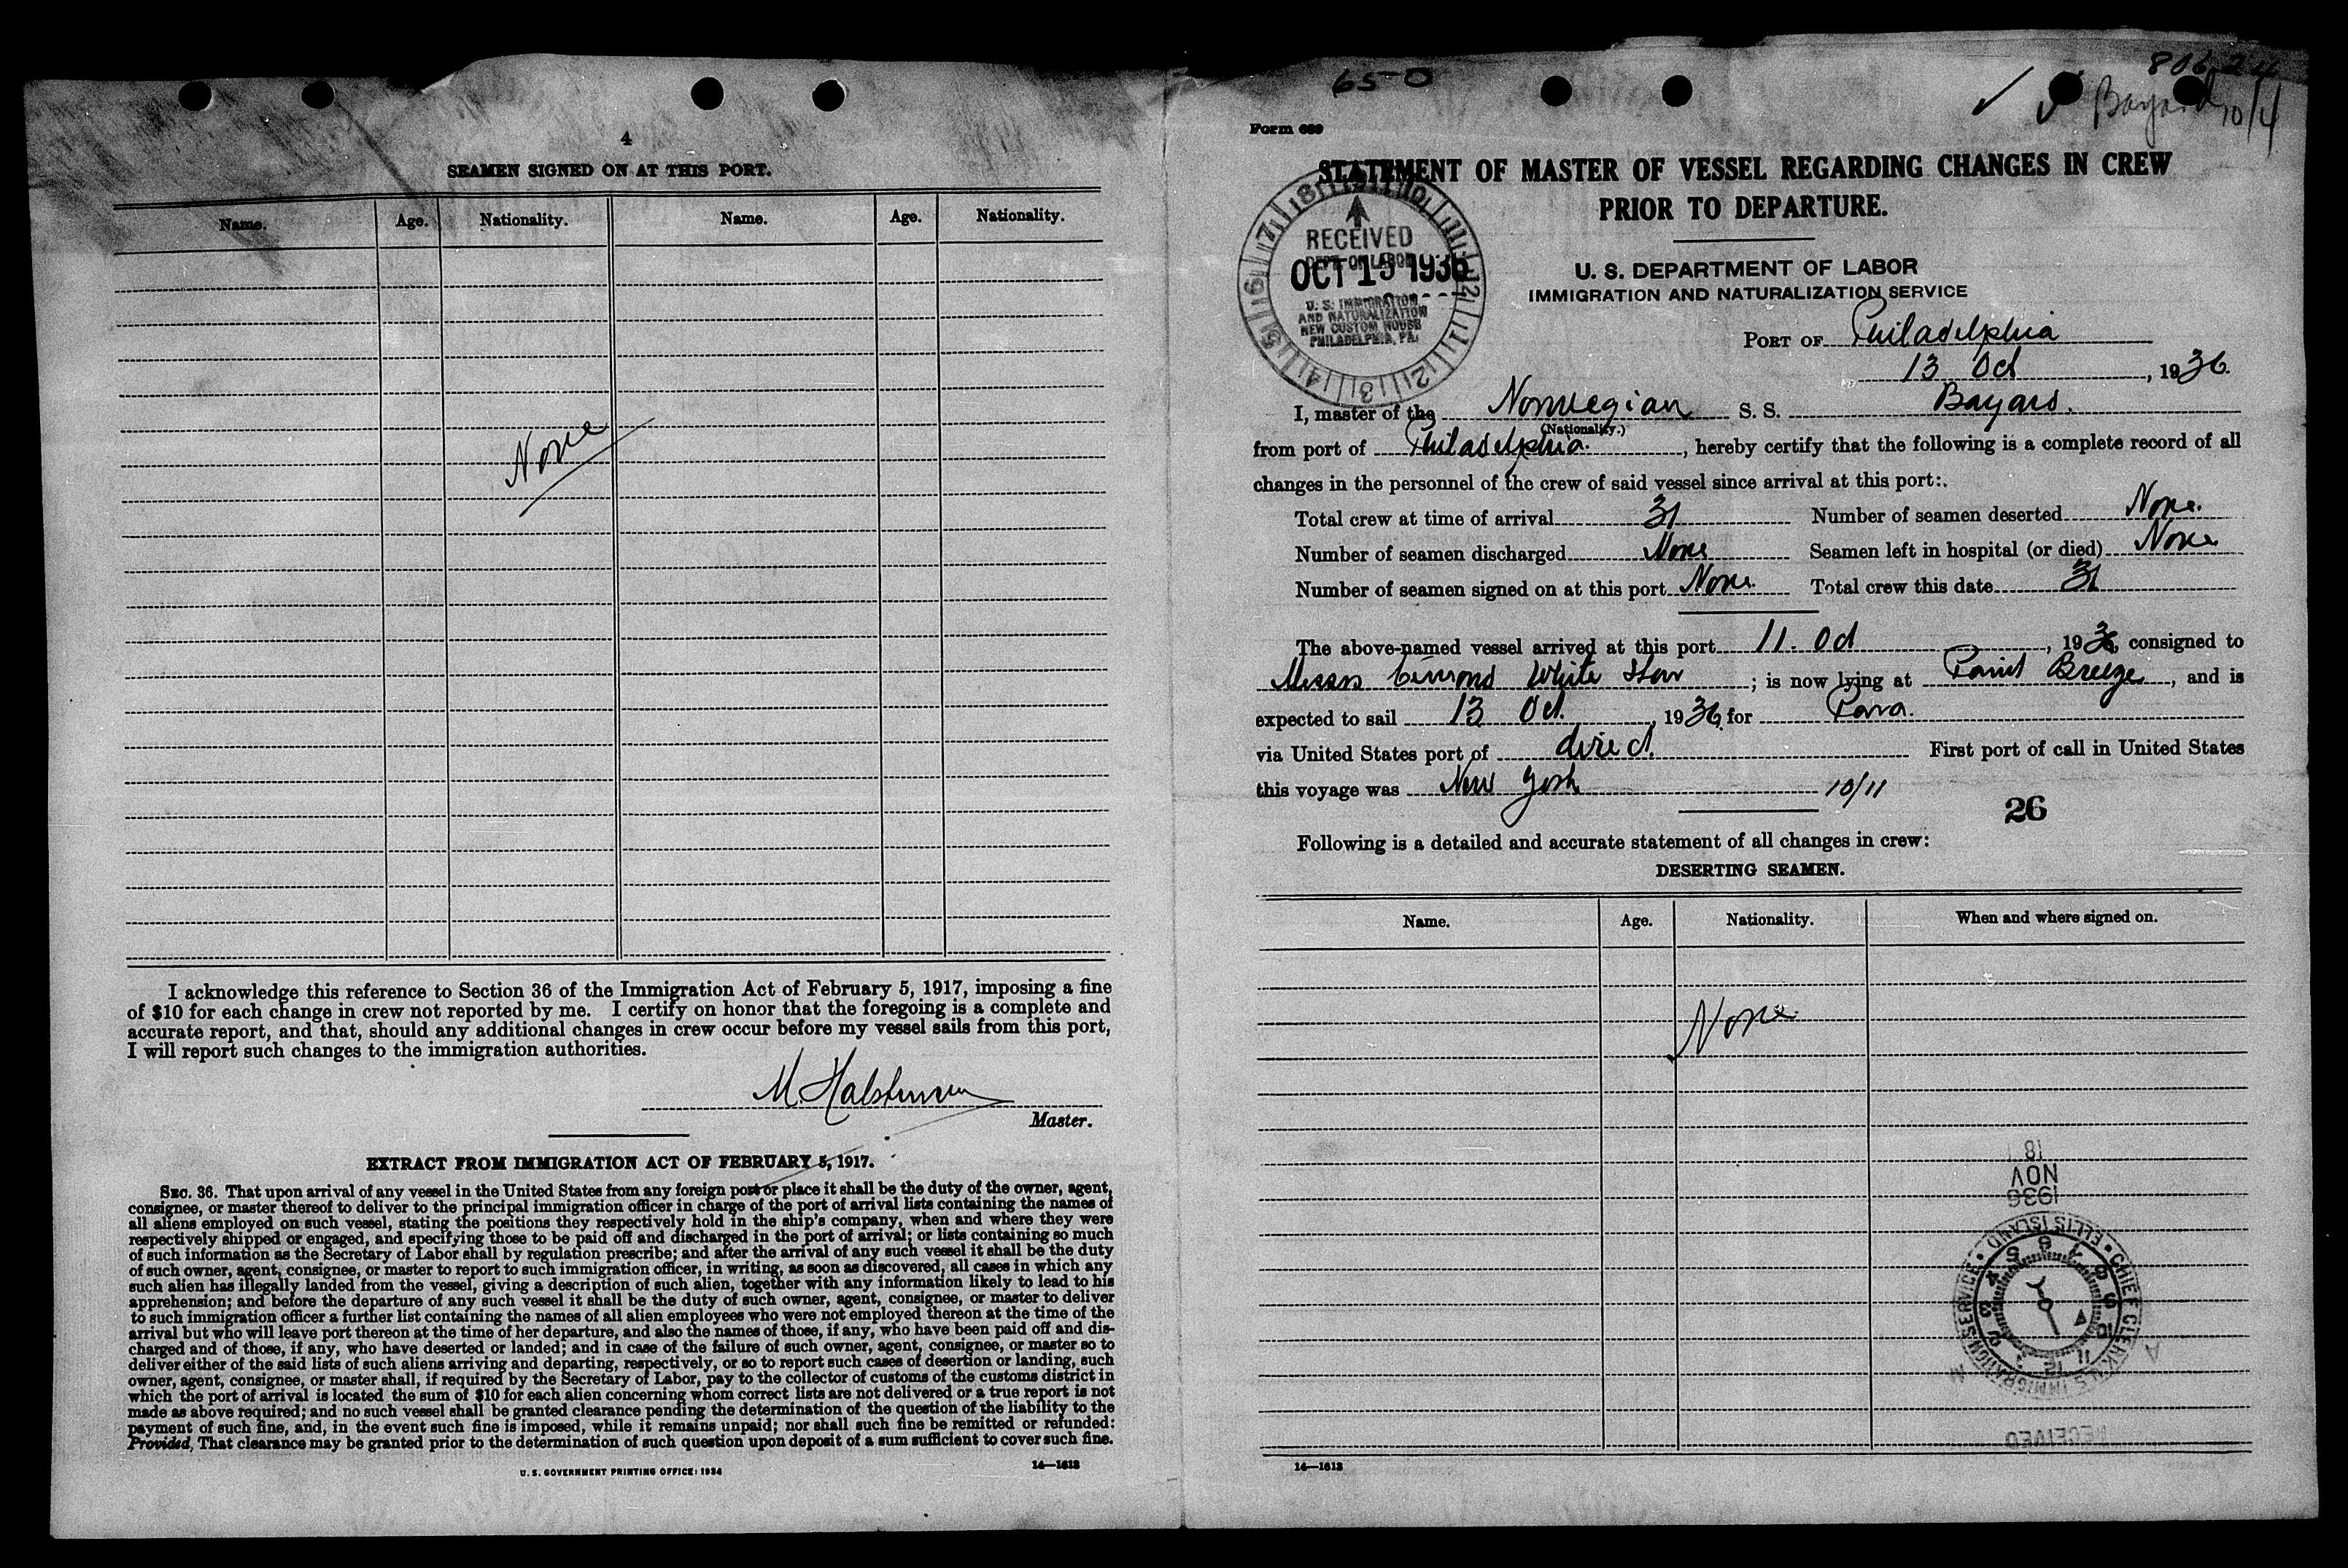 4
SEAMEN SIGNED ON AT THIS PORT.
Name. Age. Nationality. Name. Age. Nationality.
None
I acknowledge this reference to Section 36 of the Immigration Act of February 5, 1917, imposing a fine
of $10 for each change in crew not reported by me. I certify on honor that the foregoing is a complete and
accurate report, and that, should any additional changes in crew occur before my vessel sails from this port,
I will report such changes to the immigration authorities.
M. Halstensen
Master.
EXTRACT FROM IMMIGRATION ACT OF FEBRUARY 5, 1917.
SEC. 36. That upon arrival of any vessel in the United States from any foreign port or place it shall be the duty of the owner, agent,
consignee, or master thereof to deliver to the principal immigration officer in charge of the port of arrival lists containing the names of
all aliens employed on such vessel, stating the positions they respectively hold in the ship's company, when and where they were
respectively shipped or engaged, and specifying those to be paid off and discharged in the port of arrival; or lists containing so much
of such information as the Secretary of Labor shall by regulation prescribe; and after the arrival of any such vessel it shall be the duty
of such owner, agent, consignee, or master to report to such immigration officer, in writing, as soon as discovered, all cases in which any
such alien has illegally landed from the vessel, giving a description of such alien, together with any information likely to lead to his
apprehension; and before the departure of any such vessel it shall be the duty of such owner, agent, consignee, or master to deliver
to such immigration officer a further list containing the names of all alien employees who were not employed thereon at the time of the
arrival but who will leave port thereon at the time of her departure, and also the names of those, if any, who have been paid off and dis-
charged and of those, if any, who have deserted or landed; and in case of the failure of such owner, agent, consignee, or master so to
deliver either of the said lists of such aliens arriving and departing, respectively, or so to report such cases of desertion or landing, such
owner, agent, consignee, or master shall, if required by the Secretary of Labor, pay to the collector of customs of the customs district in
which the port of arrival is located the sum of $10 for each alien concerning whom correct lists are not delivered or a true report is not
made as above required; and no such vessel shall be granted clearance pending the determination of the question of the liability to the
payment of such fine, and, in the event such fine is imposed, while it remains unpaid; nor shall such fine be remitted or refunded:
Provided, That clearance may be granted prior to the determination of such question upon deposit of a sum sufficient to cover such fine.
U. S. GOVERNMENT PRINTING OFFICE: 1934 14—1613
65-0
Bayard 10/4
Form 689
STATEMENT OF MASTER OF VESSEL REGARDING CHANGES IN CREW
PRIOR TO DEPARTURE.
RECEIVED
DEPT. OF LABOR
OCT 15 1936
U. S. IMMIGRATION
AND NATURALIZATION
NEW CUSTOM HOUSE
PHILADELPHIA, PA.
U. S. DEPARTMENT OF LABOR
IMMIGRATION AND NATURALIZATION SERVICE
PORT OF Philadelphia
13 Oct, 1936.
I, master of the Norwegian S. S. Bayard.
(Nationality.)
from port of Philadelphia, hereby certify that the following is a complete record of all
changes in the personnel of the crew of said vessel since arrival at this port:
Total crew at time of arrival 31 Number of seamen deserted None.
Number of seamen discharged None Seamen left in hospital (or died) None
Number of seamen signed on at this port None. Total crew this date 31
The above-named vessel arrived at this port 11. Oct, 1936, consigned to
Messrs White Star; is now lying at Point Breeze, and is
expected to sail 13 Oct., 1936, for Para.
via United States port of direct. First port of call in United States
this voyage was New York 10/11
26
Following is a detailed and accurate statement of all changes in crew:
DESERTING SEAMEN.
Name. Age. Nationality. When and where signed on.
None
18
NOV
1936
CHIEF CLERK U.S. IMMIGRATION SERVICE • ELLIS ISLAND •
RECEIVED
14—1613